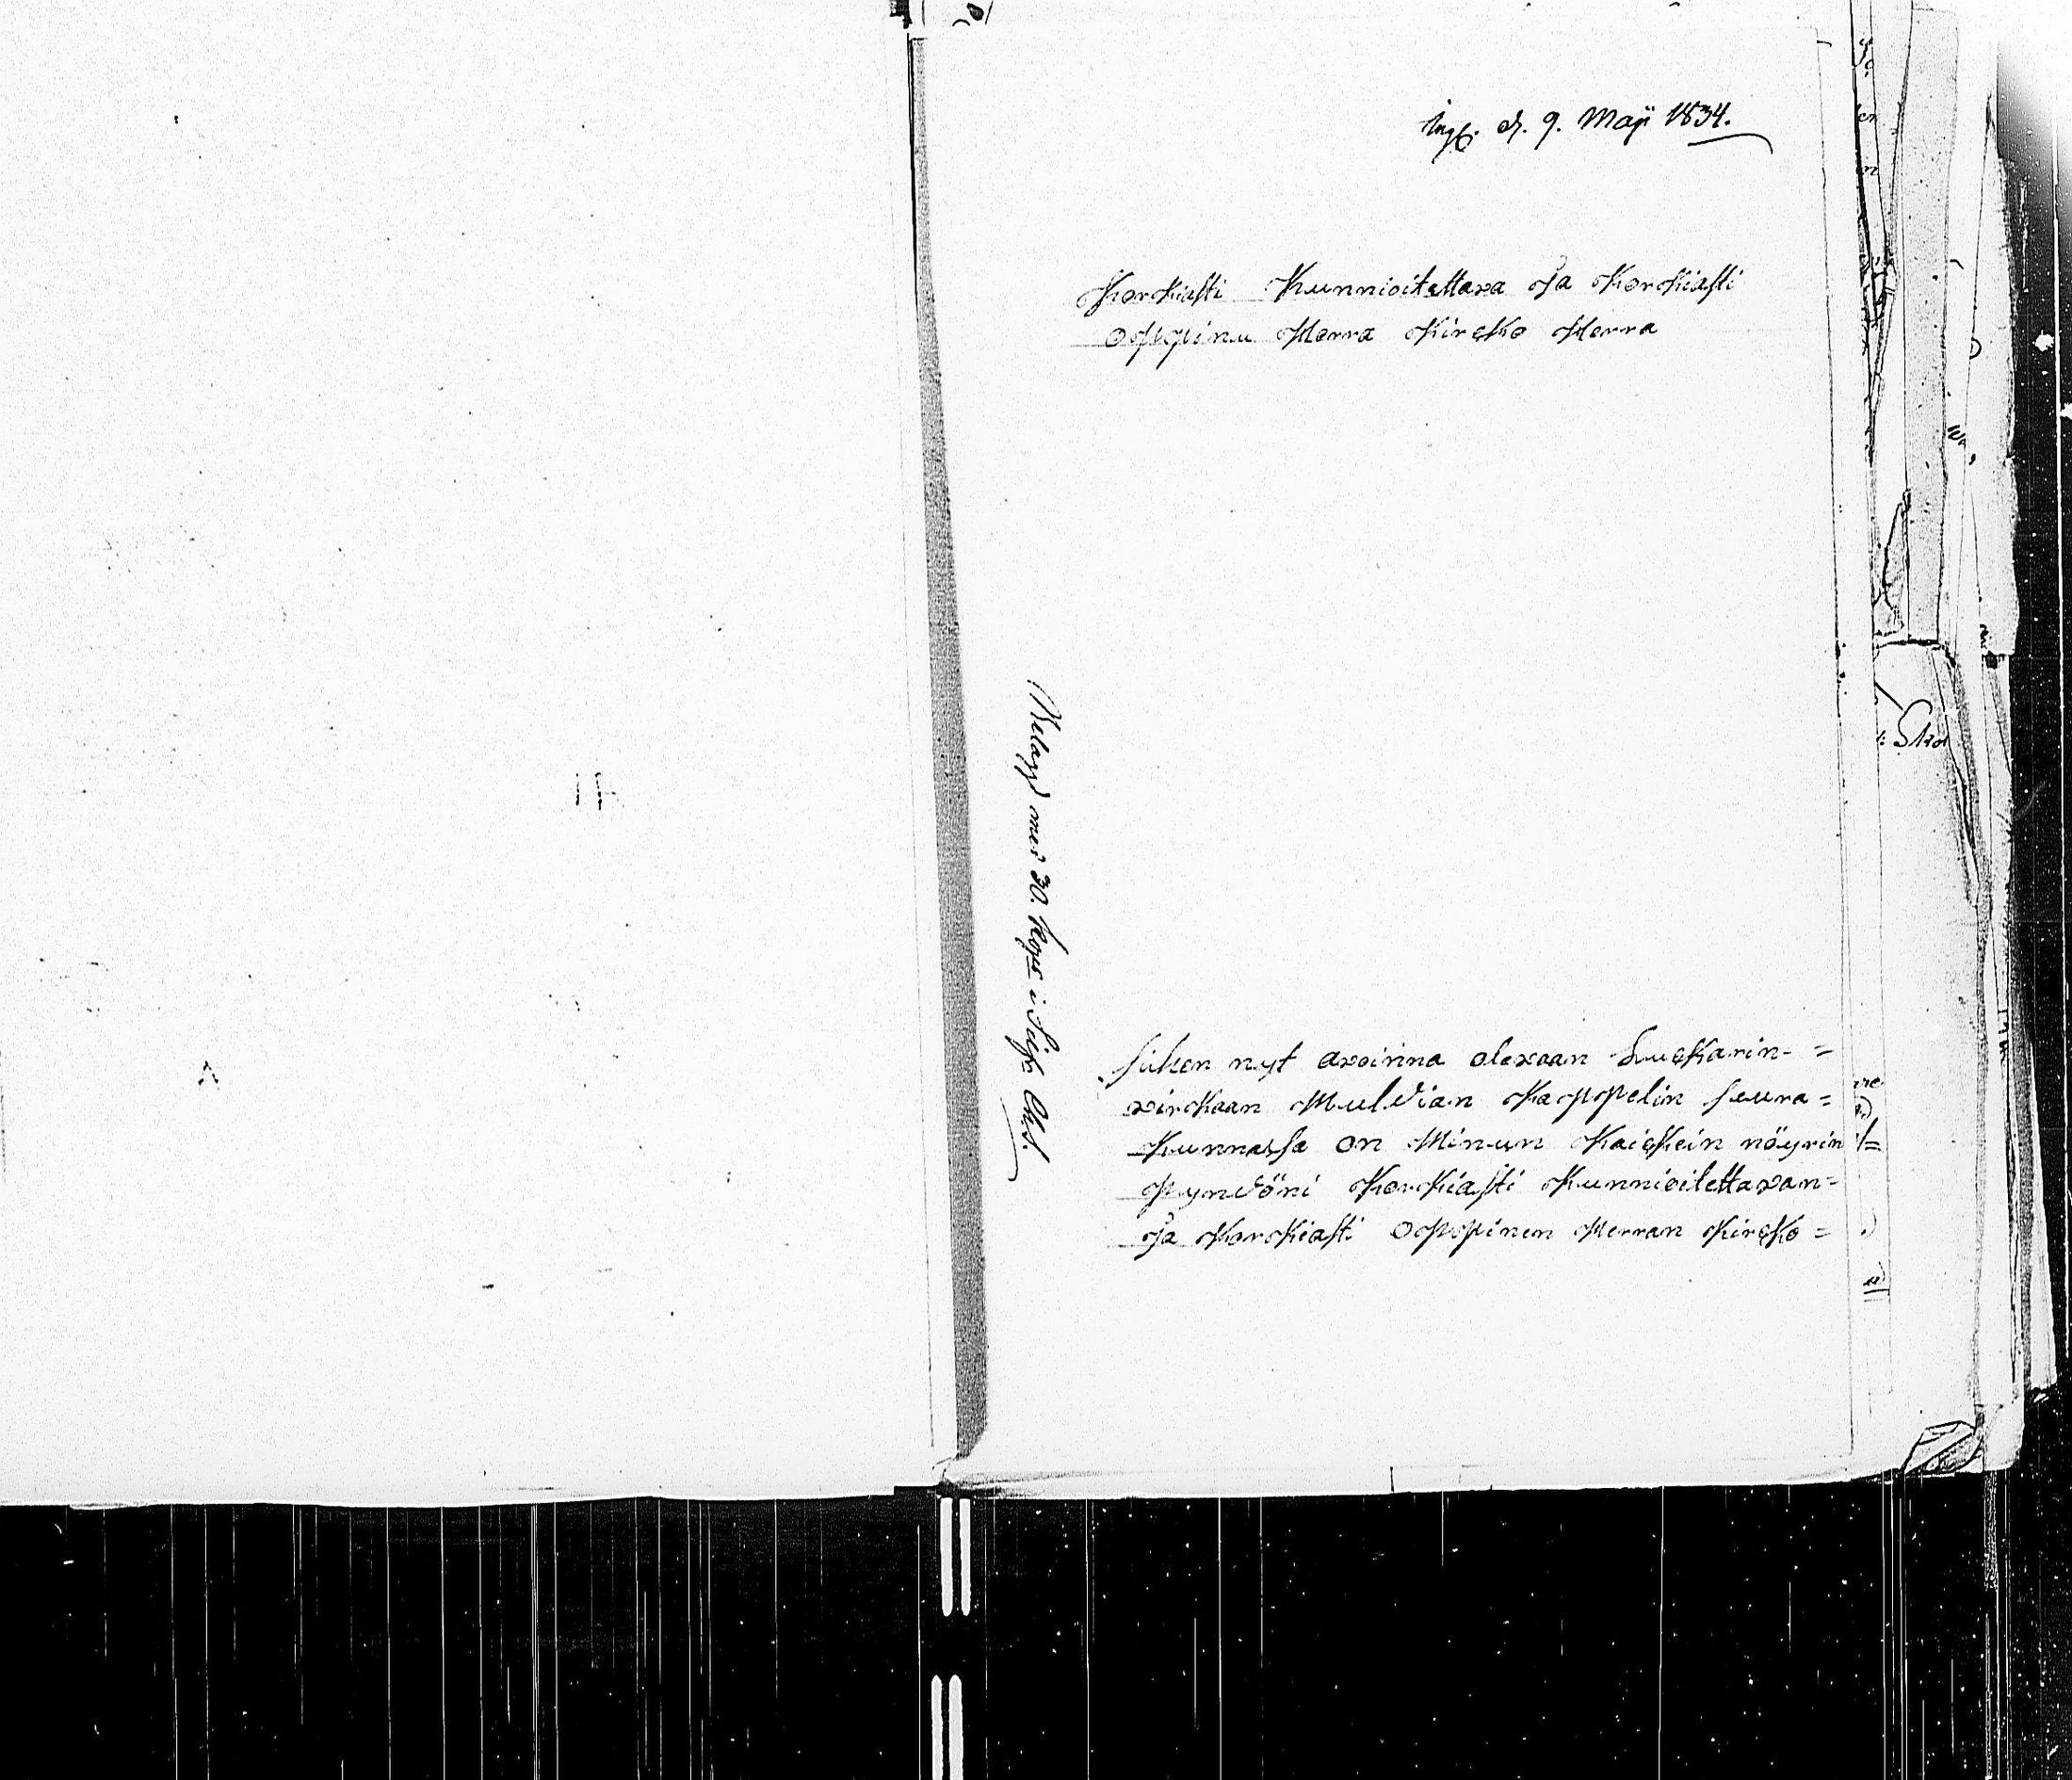 Ing. d. 9. Maji 1834.
Korkiasti Kunnioitettava Ja Korkiasti
Oppinu Herra Kircko Herra
Belagd med 30. kop. i Chst.
siihen nyt avoinna olevaan Luckarin-=
virckaan Muldian Kappelin seura=
kunnassa on Minun Kaickein nöyrin
Pyndöni Korkiasti Kunnioitettavan-
Ja Korkiasti Oppinen Herran Kircko=